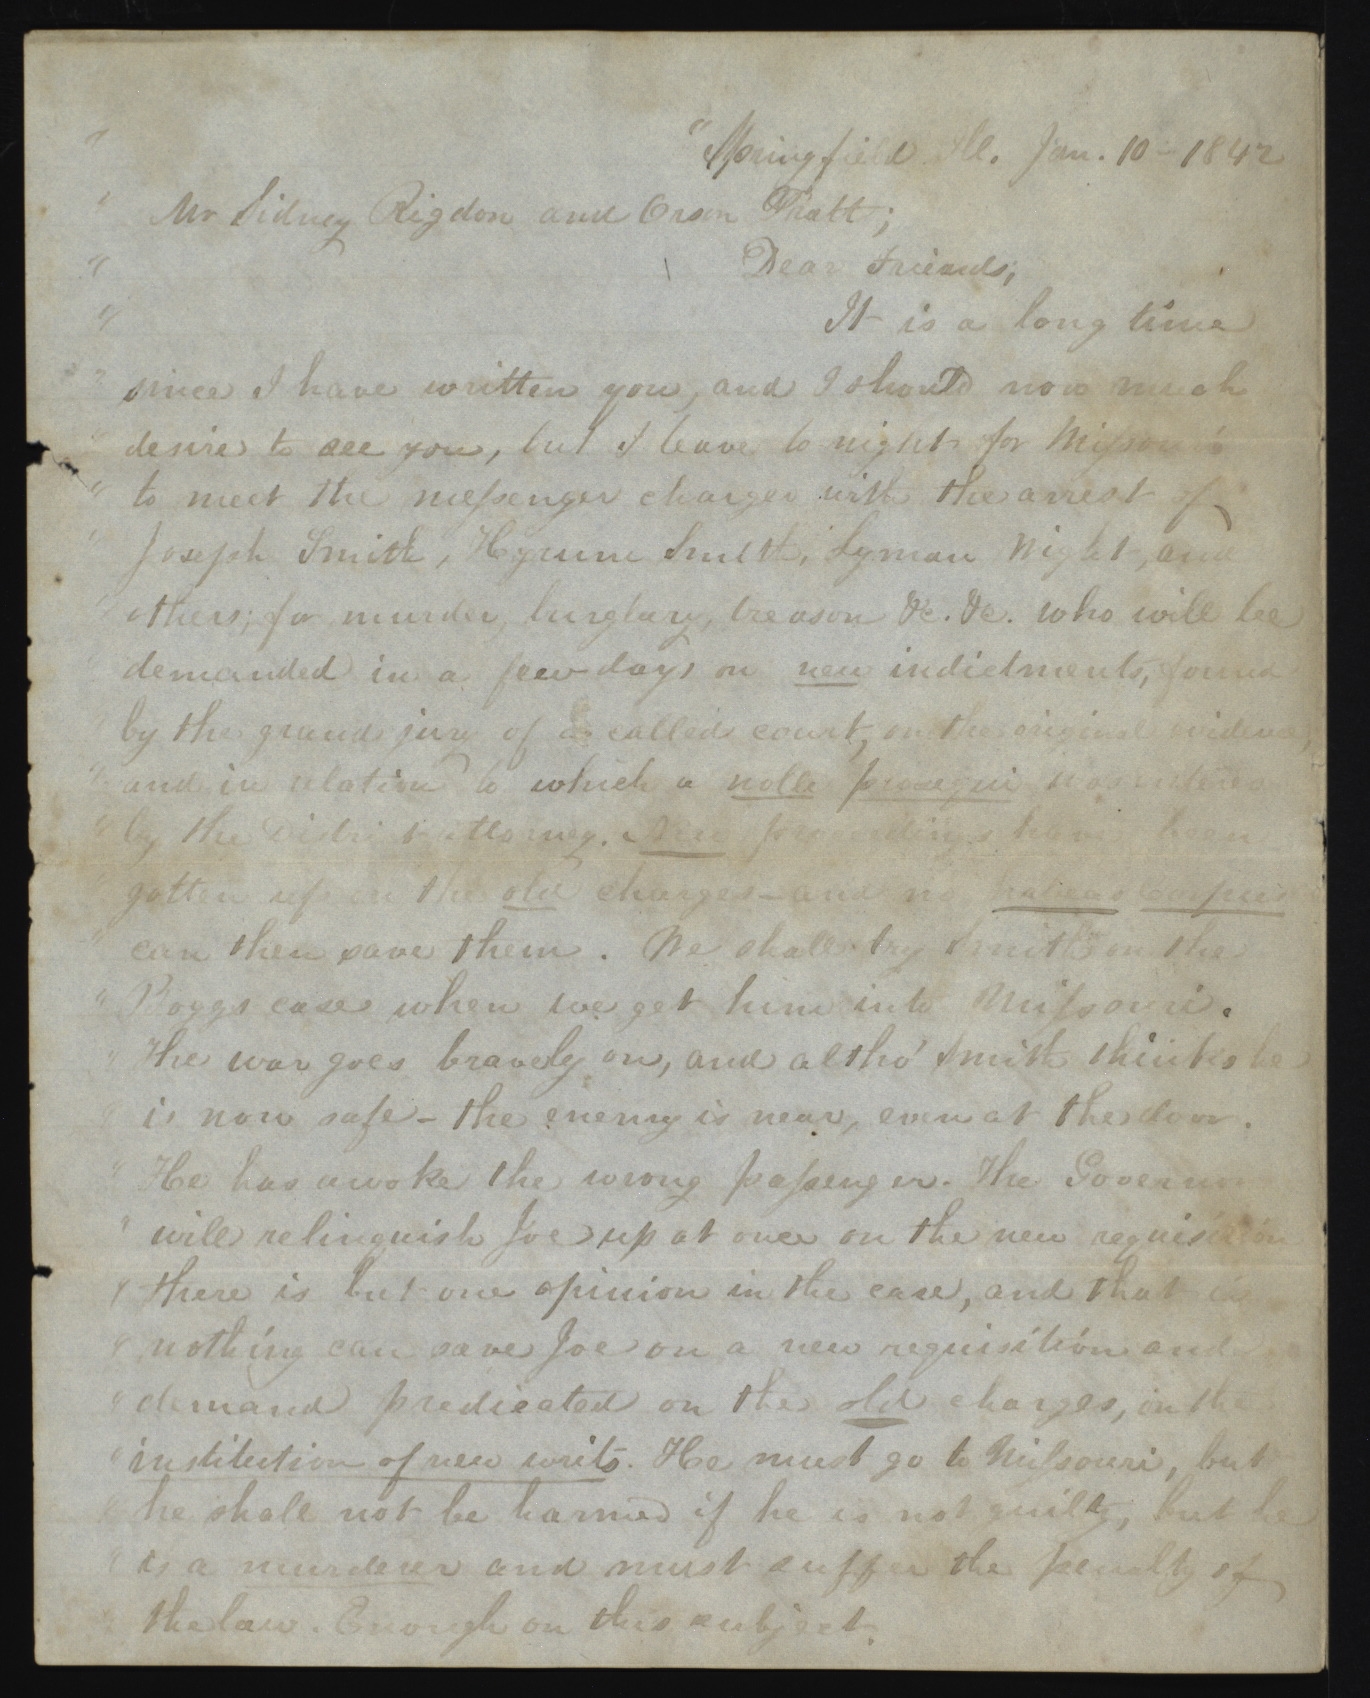 " "Springfield Ill. Jan. 10 - 1842
" Mr Sidney Rigdon and Orson Pratt;
" Dear Friends;
" It is a long time
" since I have written you, and I should now much
" desire to see you, but I leave to night for Missouri
" to meet the messenger charged with the arrest of
" Joseph Smith, Hyrum Smith, Lyman Wight, and
" others, for murder, burglary, treason &c. &c. who will be
" demanded in a few days on new indictments, found
" by the grand jury of a called court, on the original evidence,
" and in relation to which a nolle prosequi was entered
" by the District attorney. New proceedings have been
" gotten up on the old charges - and no habeas corpus
" can then save them. We shall try Smith on the
" Boggs case when we get him into Missouri.
" The war goes bravely on, and altho' Smith thinks he
" is now safe - the enemy is near, even at the door.
" He has awoke the wrong passenger. The Governor
" will relinquish Joe up at once on the new requisition
" there is but one opinion in the case, and that is
" nothing can save Joe on a new requisition and
" demand predicated on the old charges, on the
" institution of new writs. He must go to Missouri, but
" he shall not be harmed if he is not guilty, but he
" is a murderer and must suffer the penalty of
" the law. Enough on this subject.